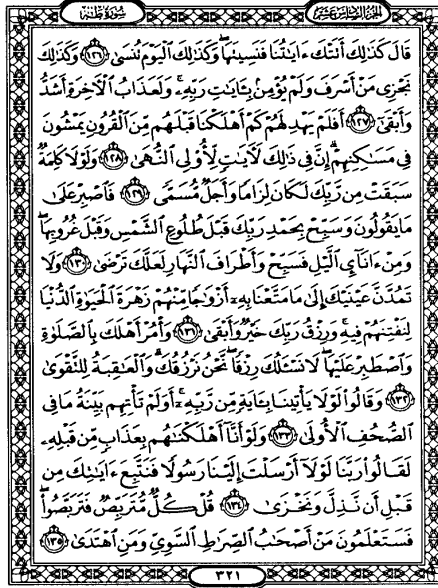 سُورَةُ طه
الجزء السادس عشر
قَالَ كَذَٰلِكَ أَتَتْكَ ءَايَٰتُنَا فَنَسِيتَهَا ۖ وَكَذَٰلِكَ ٱلْيَوْمَ تُنسَىٰ ﴿١٢٦﴾ وَكَذَٰلِكَ
نَجْزِى مَنْ أَسْرَفَ وَلَمْ يُؤْمِنۢ بِـَٔايَٰتِ رَبِّهِۦ ۚ وَلَعَذَابُ ٱلْءَاخِرَةِ أَشَدُّ
وَأَبْقَىٰٓ ﴿١٢٧﴾ أَفَلَمْ يَهْدِ لَهُمْ كَمْ أَهْلَكْنَا قَبْلَهُم مِّنَ ٱلْقُرُونِ يَمْشُونَ
فِى مَسَٰكِنِهِمْ ۗ إِنَّ فِى ذَٰلِكَ لَءَايَٰتٍ لِّأُو۟لِى ٱلنُّهَىٰ ﴿١٢٨﴾ وَلَوْلَا كَلِمَةٌ
سَبَقَتْ مِن رَّبِّكَ لَكَانَ لِزَامًا وَأَجَلٌ مُّسَمًّى ﴿١٢٩﴾ فَٱصْبِرْ عَلَىٰ
مَا يَقُولُونَ وَسَبِّحْ بِحَمْدِ رَبِّكَ قَبْلَ طُلُوعِ ٱلشَّمْسِ وَقَبْلَ غُرُوبِهَا ۖ
وَمِنْ ءَانَآئِ ٱلَّيْلِ فَسَبِّحْ وَأَطْرَافَ ٱلنَّهَارِ لَعَلَّكَ تَرْضَىٰ ﴿١٣٠﴾ وَلَا
تَمُدَّنَّ عَيْنَيْكَ إِلَىٰ مَا مَتَّعْنَا بِهِۦٓ أَزْوَٰجًا مِّنْهُمْ زَهْرَةَ ٱلْحَيَوٰةِ ٱلدُّنْيَا
لِنَفْتِنَهُمْ فِيهِ ۚ وَرِزْقُ رَبِّكَ خَيْرٌ وَأَبْقَىٰ ﴿١٣١﴾ وَأْمُرْ أَهْلَكَ بِٱلصَّلَوٰةِ
وَٱصْطَبِرْ عَلَيْهَا ۖ لَا نَسْـَٔلُكَ رِزْقًا ۖ نَّحْنُ نَرْزُقُكَ ۗ وَٱلْعَٰقِبَةُ لِلتَّقْوَىٰ
﴿١٣٢﴾ وَقَالُوا۟ لَوْلَا يَأْتِينَا بِـَٔايَةٍ مِّن رَّبِّهِۦٓ ۚ أَوَلَمْ تَأْتِهِم بَيِّنَةُ مَا فِى
ٱلصُّحُفِ ٱلْأُولَىٰ ﴿١٣٣﴾ وَلَوْ أَنَّآ أَهْلَكْنَٰهُم بِعَذَابٍ مِّن قَبْلِهِۦ
لَقَالُوا۟ رَبَّنَا لَوْلَآ أَرْسَلْتَ إِلَيْنَا رَسُولًا فَنَتَّبِعَ ءَايَٰتِكَ مِن
قَبْلِ أَن نَّذِلَّ وَنَخْزَىٰ ﴿١٣٤﴾ قُلْ كُلٌّ مُّتَرَبِّصٌ فَتَرَبَّصُوا۟ ۖ
فَسَتَعْلَمُونَ مَنْ أَصْحَٰبُ ٱلصِّرَٰطِ ٱلسَّوِىِّ وَمَنِ ٱهْتَدَىٰ ﴿١٣٥﴾
٣٢١